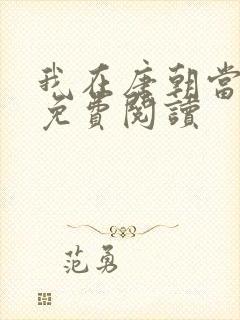 我在唐朝當
免費閱讀
范勇